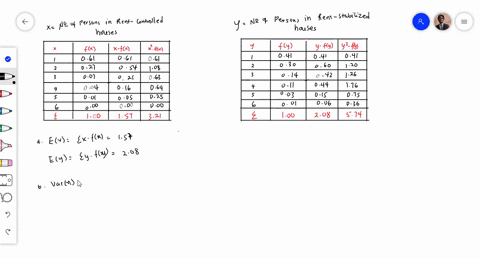 x = № of Persons in Rent-Controlled houses
x f(x) x·f(x) x²·f(x)
1 0.61 0.61 0.61
2 0.27 0.54 1.08
3 0.07 0.21 0.63
4 0.04 0.16 0.64
5 0.01 0.05 0.25
6 0.00 0.00 0.00
Σ 1.00 1.57 3.21
y = № of Persons in Rent-stabilized houses
y f(y) y·f(y) y²·f(y)
1 0.41 0.41 0.41
2 0.30 0.60 1.20
3 0.14 0.42 1.26
4 0.11 0.44 1.76
5 0.03 0.15 0.75
6 0.01 0.06 0.36
Σ 1.00 2.08 5.74
a. E(x) = Σx·f(x) = 1.57
E(y) = Σy·f(y) = 2.08
b. Var(x)